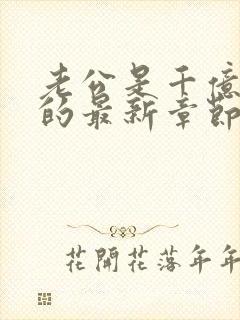 老公是千億
的最新章節
花開花落年年